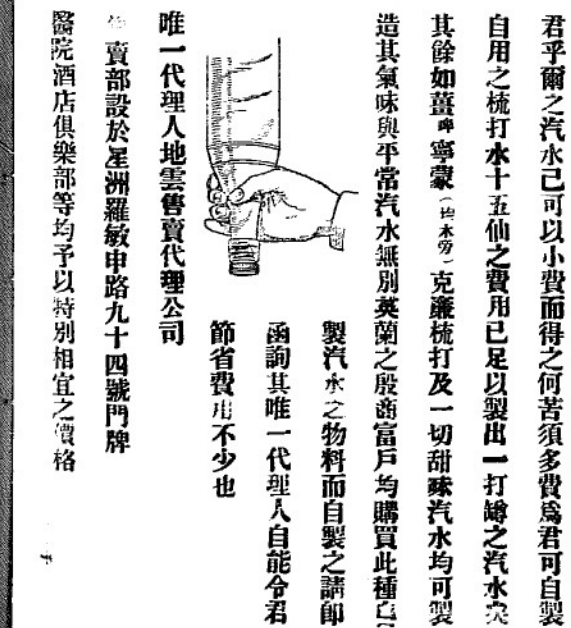 君乎爾之汽水已可以小費而得之何苦須多費爲君可自製
自用之梳打水十五仙之費用已足以製出一打罇之汽水矣
其餘如薑啤寧蒙(均水旁)克廉梳打及一切甜味汽水均可製
造其氣味與平常汽水無別英蘭之殷商富戶均購買此種
製汽水之物料而自製之請即
函詢其唯一代理人自能令君
節省費用不少也
唯一代理人地雲售賣代理公司
賣部設於星洲羅敏申路九十四號門牌
醫院酒店俱樂部等均予以特別相宜之價格